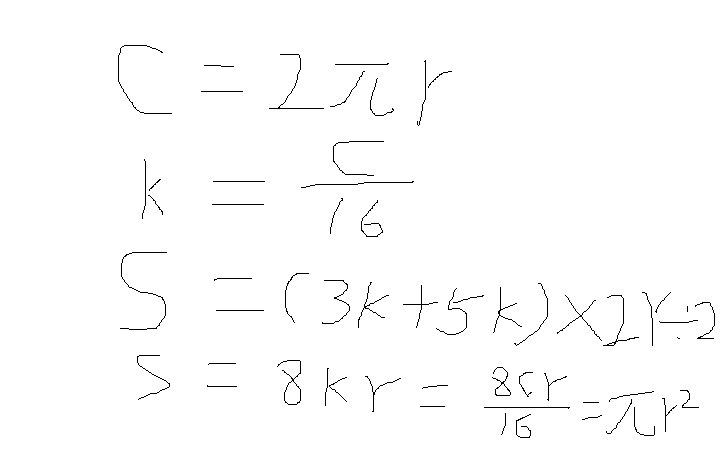 C = 2πr
k = C/16
S = (3k+5k)×2r÷2
S = 8kr = 8Cr/16 = πr²